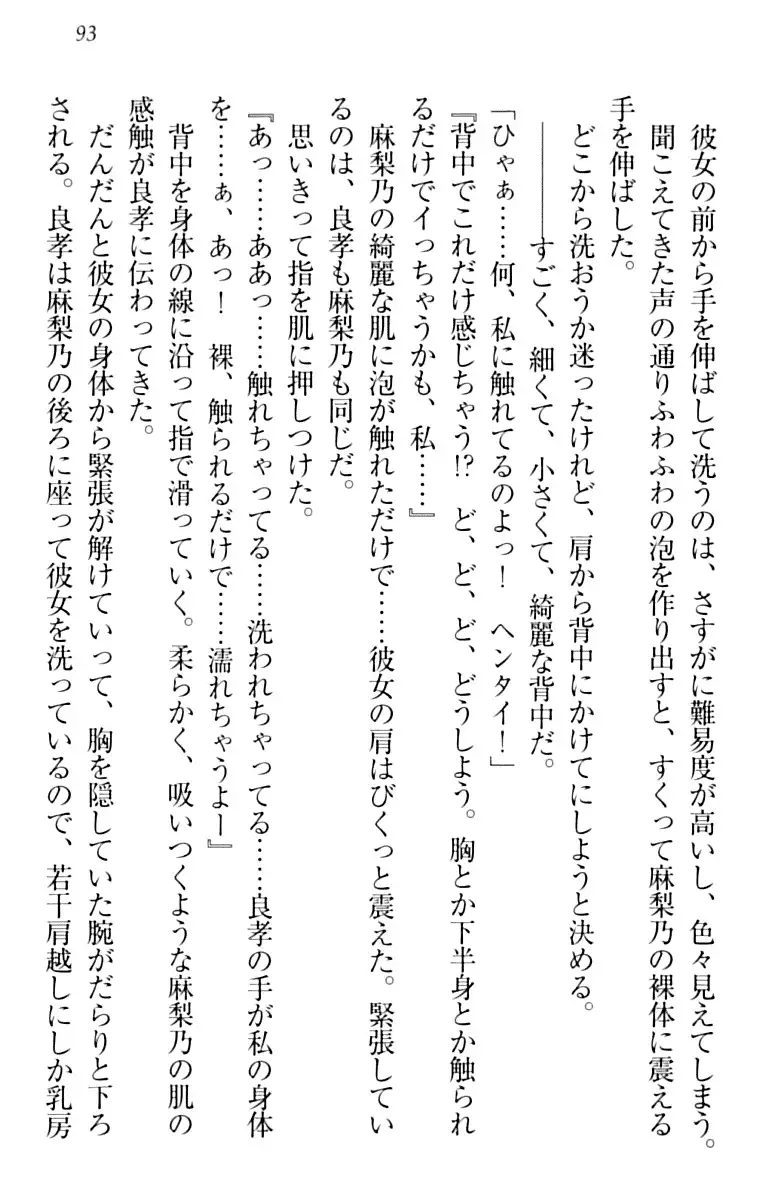 93
彼女の前から手を伸ばして洗うのは、さすがに難易度が高いし、色々見えてしまう。
聞こえてきた声の通りふわふわの泡を作り出すと、すくって麻梨乃の裸体に震える
手を伸ばした。
どこから洗おうか迷ったけれど、肩から背中にかけてにしようと決める。
――――すごく、細くて、小さくて、綺麗な背中だ。
「ひゃぁ……何、私に触れてるのよっ！　ヘンタイ！」
『背中でこれだけ感じちゃう!?　ど、ど、ど、どうしよう。胸とか下半身とか触られ
るだけでイっちゃうかも、私……』
麻梨乃の綺麗な肌に泡が触れただけで……彼女の肩はびくっと震えた。緊張してい
るのは、良孝も麻梨乃も同じだ。
思いきって指を肌に押しつけた。
『あっ……ああっ……触れちゃってる……洗われちゃってる……良孝の手が私の身体
を……ぁ、あっ！　裸、触られるだけで……濡れちゃうよー』
背中を身体の線に沿って指で滑っていく。柔らかく、吸いつくような麻梨乃の肌の
感触が良孝に伝わってきた。
だんだんと彼女の身体から緊張が解けていって、胸を隠していた腕がだらりと下ろ
される。良孝は麻梨乃の後ろに座って彼女を洗っているので、若干肩越しにしか乳房